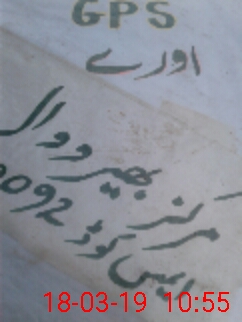 GPS
اورے
مرکز بھیرووال
ایس کوڈ 0092
18-03-19 10:55